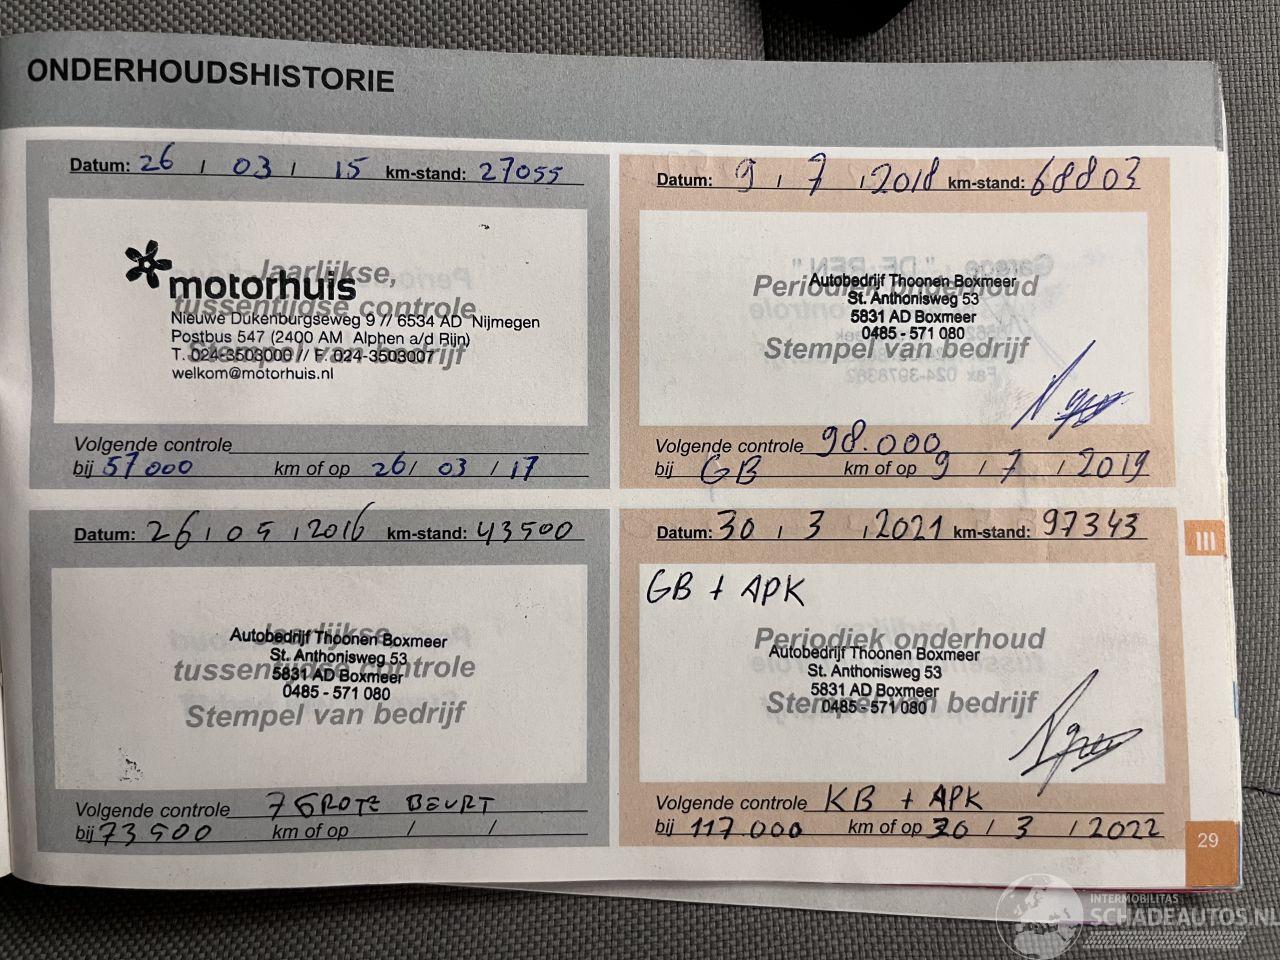 ONDERHOUDSHISTORIE
Datum: 26 / 03 / 15 km-stand: 27055
Jaarlijkse,
motorhuis
tussentijdse controle
Nieuwe Dukenburgseweg 9 // 6534 AD Nijmegen
Postbus 547 (2400 AM Alphen a/d Rijn)
Stempel van bedrijf
T. 024-3503000 // F. 024-3503007
welkom@motorhuis.nl
Volgende controle
bij 57000 km of op 26/ 03 / 17
Datum: 9 / 7 / 2018 km-stand: 68803
Autobedrijf Thoonen Boxmeer
Periodiek onderhoud
St. Anthonisweg 53
5831 AD Boxmeer
0485 - 571 080
Stempel van bedrijf
Volgende controle 98.000
bij GB km of op 9 / 7 / 2019
Datum: 26 / 05 / 2016 km-stand: 43500
Jaarlijkse,
Autobedrijf Thoonen Boxmeer
St. Anthonisweg 53
tussentijdse controle
5831 AD Boxmeer
0485 - 571 080
Stempel van bedrijf
Volgende controle GROTE BEURT
bij 73500 km of op / /
Datum: 30 / 3 / 2021 km-stand: 97343
GB + APK
Periodiek onderhoud
Autobedrijf Thoonen Boxmeer
St. Anthonisweg 53
5831 AD Boxmeer
Stempel van bedrijf
0485 - 571 080
Volgende controle KB + APK
bij 117.000 km of op 30 / 3 / 2022
III
29
INTERMOBILITAS
SCHADEAUTOS.NL